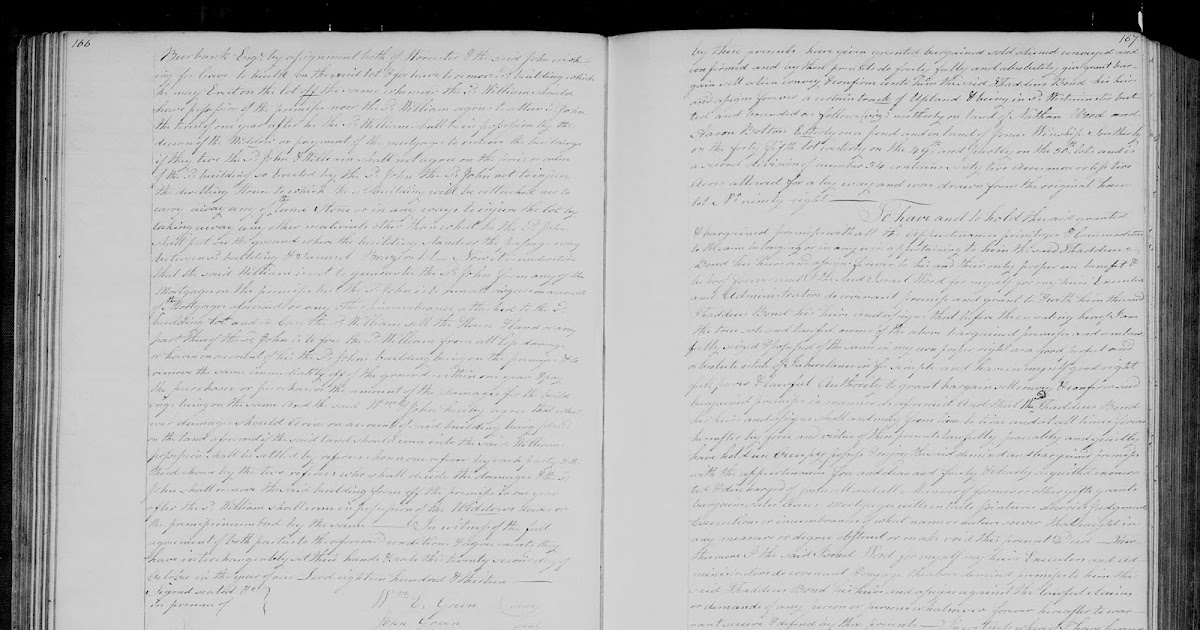 166
Burbank Esqr by assignment both of Worcester & the said John wish-
ing for leave to build on the said lot & to have to remove a building which
he may Erect on the lot off the same whenever the sd William should
have possession of the premises now the sd William agrees to allow sd John
the term of one year after he the sd William shall be in possession by the
decease of the Widow or payment of the mortgage to remove the buildings
if they two the sd John & William shall not agree on the price or value
of the sd building so Erected by the sd John the sd John not to injure
the dwelling House to which the sd building will be attached nor to
carry away any of the Stone or in any ways to injure the lot by
taking away any other materials other than what he the sd John
shall put on the ground where the building stand or the passage way
between sd building & Samuel
that the said William is not to guarantee the sd John from any of the
Mortgages on the premises but the sd John is to run all risques on account
of the Mortgages aforesaid or any other incumbrance attached to the sd
building lot and in Case the sd William sell the House & land or any
part thereof the sd John is to free the sd William from all loss damage
or harm on account of his the sd Johns building being on the premises & to
remove the same immediately off of the ground within one year & pay
the purchaser or purchasers the amount of the damages for the build
ing being on the same And the said Wm & John hereby agree that what
ever damages should Arise on account of said building being placed
on the land aforesaid if the said land should come into the said William
possession shall be settled by referees chosen one referee by each party & the
third chosen by the two referees who shall decide the damages & the sd
John shall remove the said building from off the premises in one year
after the sd William shall come in possession of the Widdows thirds or
the premises incumbered by the same — In witness of the full
agreement of both parties to the aforesaid conditions & agreements they
have interchangeably set their hands & seals this twenty second day of
October in the year of our Lord eighteen hundred & thirteen —
Signed sealed &c
In presence of
Wm E. Green (seal)
John Green (seal)
167
by these presents have given granted bargained sold aliened conveyed and
confirmed and by these presents do freely fully and absolutely give grant bar
gain sell alien convey & confirm unto him the said Thaddeus Bond his heirs
and assigns forever a certain track of Upland lying in sd Westminster but-
ted and bounded as follows (viz) northerly on land of Nathan Wood and
Aaron Bolton Easterly on a pond and on land of Jonas Winship Southerly
on the forty fifth lot westerly on the 49th and partly on the 50th lots and is
a second division of number 34 contains sixty two Acres more or less two
Acres allowed for a by way and was drawn from the original house
lot No ninety eight —
To have and to hold the said granted
& bargained premises with all the appurtenances privileges & Commodities
to the same belonging or in any wise appertaining to him the said Thaddeus
Bond his heirs and assigns forever to his and their only proper use benefit &
behoof forever and I the said Israel Wood for myself for my heirs Executors
and Administrators do covenant promise and grant to & with him the said
Thaddeus Bond his heirs and assigns that before the ensealing hereof I am
the true sole and lawful owner of the above bargained premises and am law
fully seized & possessed of the same in my own proper right as a good perfect and
absolute estate of Inheritance in fee simple and have in myself good right
full power & lawful Authority to grant bargain sell convey & confirm said
bargained premises in manner as aforesaid And that the sd Thaddeus Bond
his heirs and assigns shall and may from time to time and at all times forever
hereafter by force and virtue of these presents lawfully peaceably and quietly
have hold use occupy possess & enjoy the said demised and bargained premises
with the appurtenances free and clear and freely & clearly acquitted exonera
ted & discharged of from all and all manner of former or other gifts grants
bargains sales leases Mortgages wills entails jointures dowries judgments
Executions or incumbrances of what name or nature soever that might in
any measure or degree obstruct or make void this present Deed — Fur
thermore I the said Israel Wood for myself my heirs Executors and Ad
ministrators do covenant & engage the above demised premises to him the
said Thaddeus Bond his heirs and assigns against the lawful claims
or demands of any person or persons whatsoever forever hereafter to war
rant secure & defend by these presents — In witness whereof I have hereun